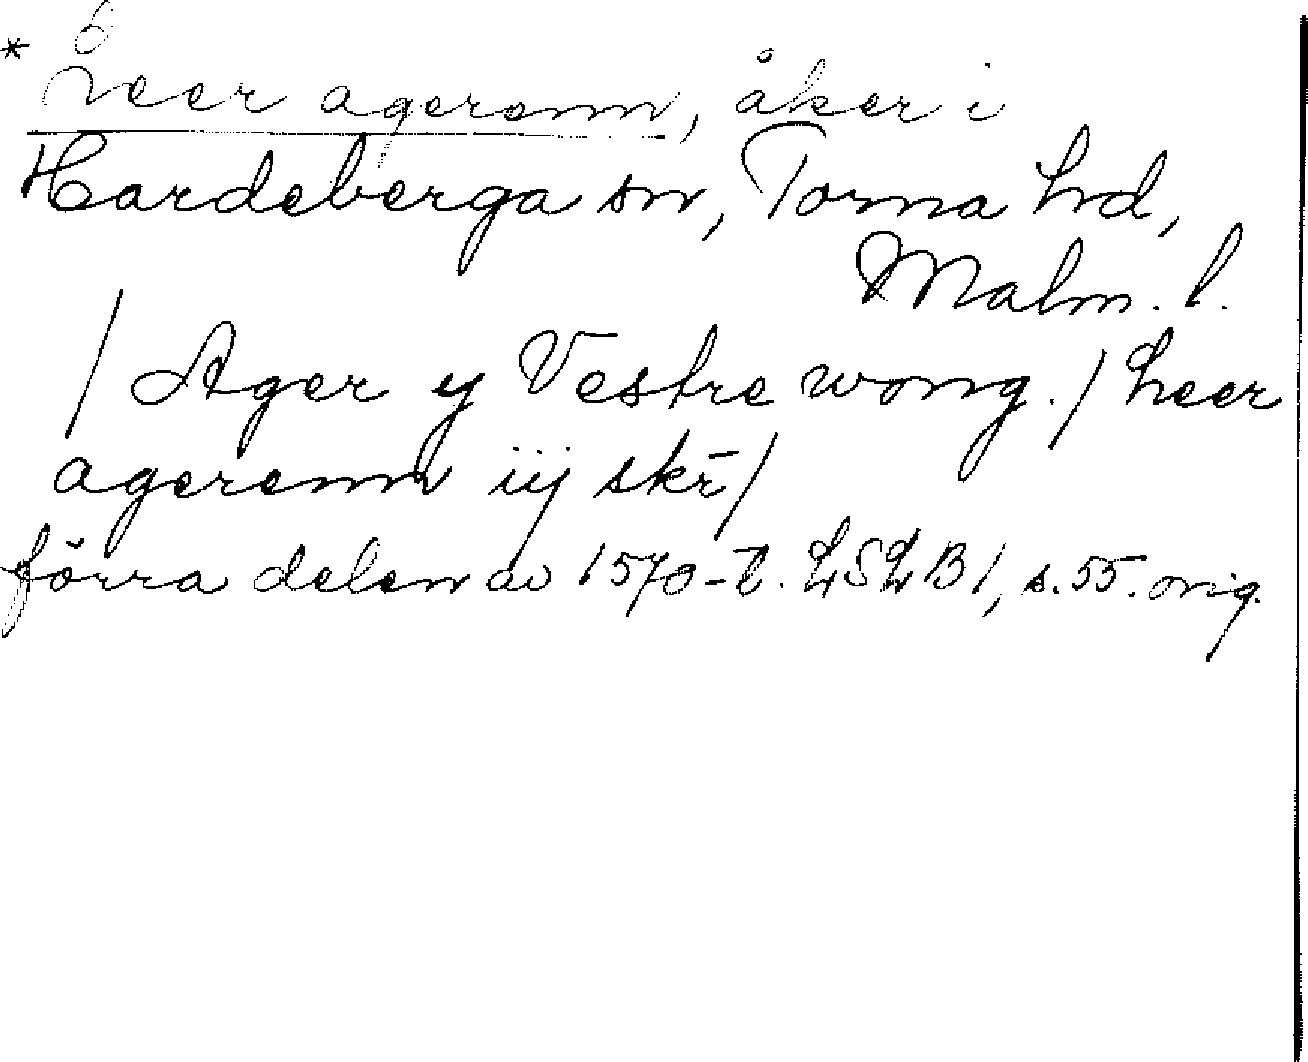 * heer agerenn, åker i
Hardeberga sn, Torna hd,
Malm. l.
/ Ager y Vestre wong. / heer
agerenn iij skr̄ /
förra delen av 1570-t. LSLB 1, s. 55. orig.